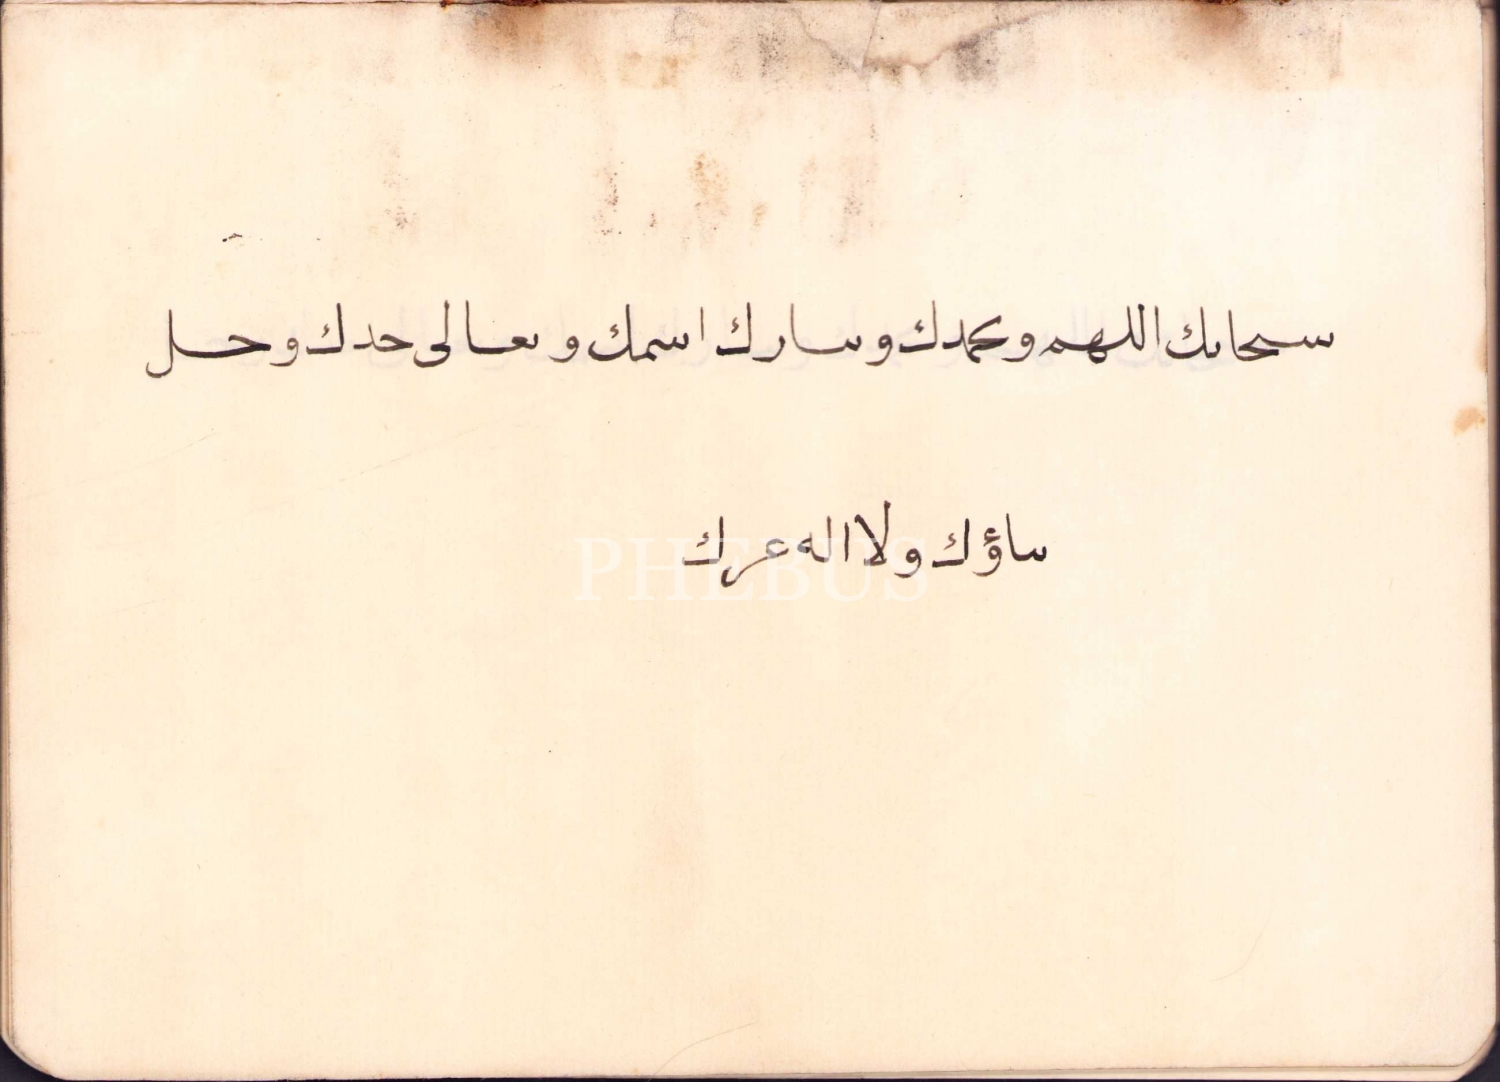 سبحانك اللهم وبحمدك وتبارك اسمك وتعالى جدك وجل
ثناؤك ولا اله غيرك
PHEBUS